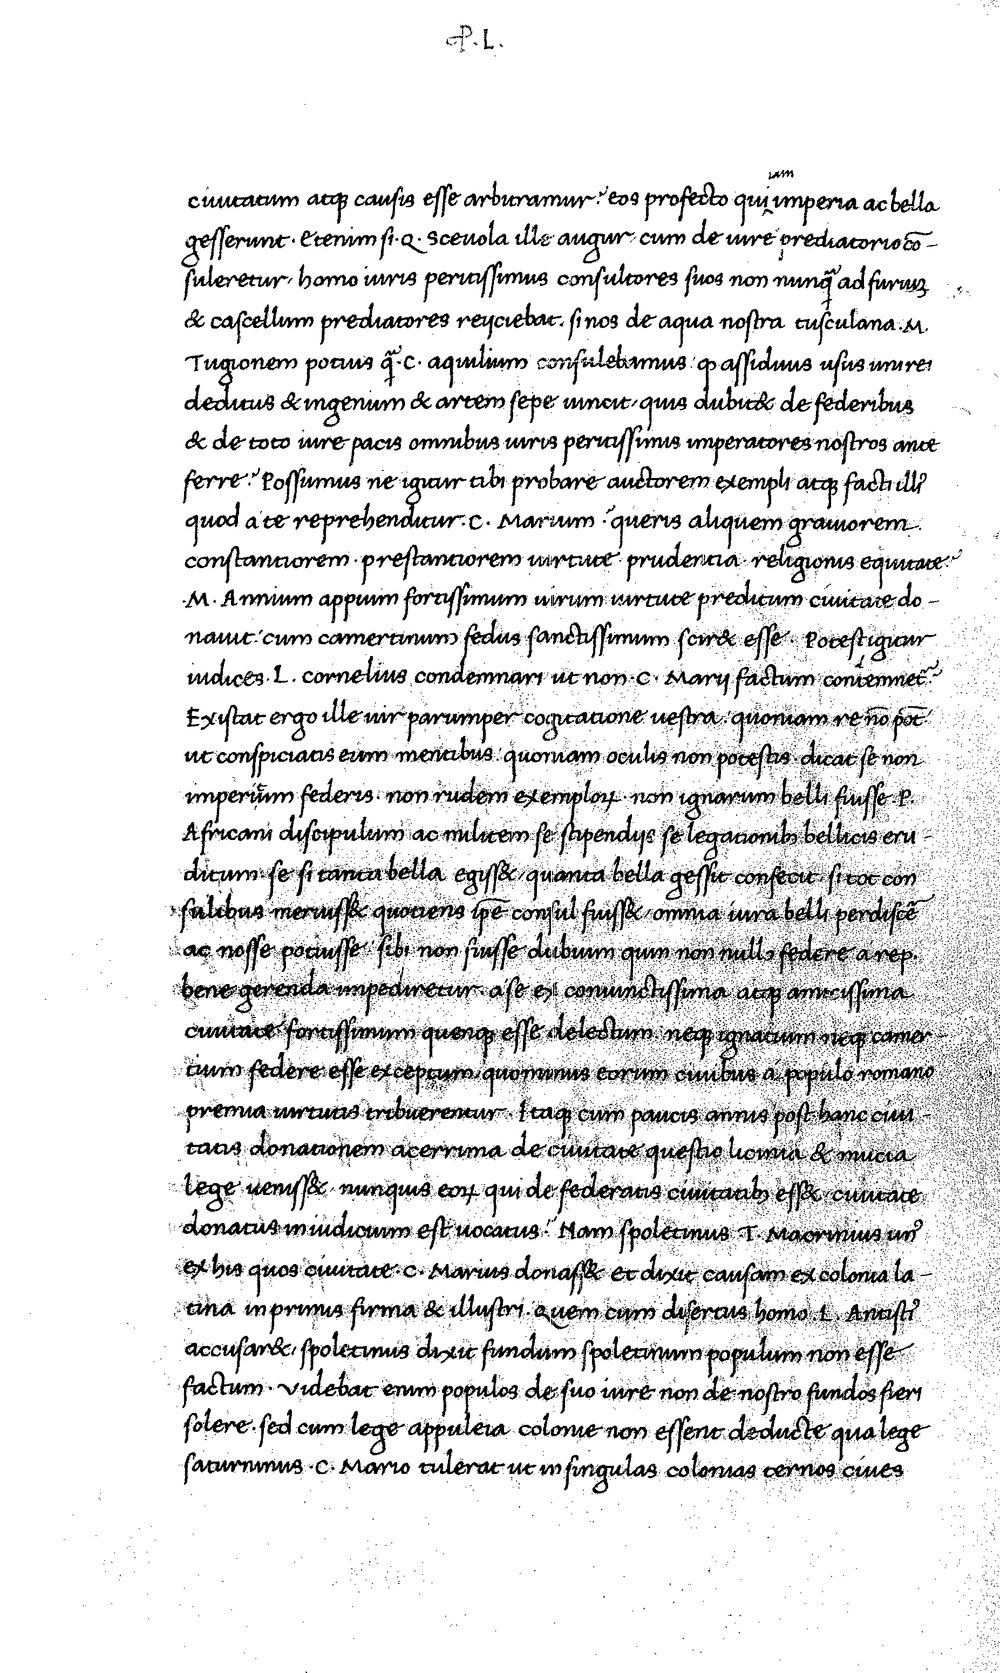 P. L.
iam
ciuitatum atq; causis esse arbitramur? eos profecto qui imperia ac bella
gesserunt. Etenim si. Q. Sceuola ille augur cum de iure prediatorio cō-
suleretur, homo iuris peritissimus consultores suos non nunq̃ ad furiuȝ
& cascellium prediatores reijciebat. si nos de aqua nostra tusculana. M.
Tugionem potius q̃. C. aquilium consulebamus qɔ assiduus usus uni rei
deditus & ingenium & artem sepe uincit, quis dubit& de federibus
& de toto iure pacis omnibus iuris peritissimis imperatores nostros ante
ferre? Possumus ne igitur tibi probare auctorem exempli atq; facti illi⁹
quod a te reprehenditur. C. Marium? queris aliquem grauiorem
constantiorem. prestantiorem uirtute prudentia religionis equitate?
.M. Annium appium fortissimum uirum uirtute preditum ciuitate do-
nauit. cum camertinum fedus sanctissimum scir& esse. Potest igitur
iudices. L. cornelius condemnari ut non. C. Marij factum contemnet̃?
Existat ergo ille uir parumper cogitatione uestra. quoniam re nō pōt
ut conspiciatis eum mentibus quoniam oculis non potestis. dicat se non
imperitū̃m federis. non rudem exemploꝝ. non ignarum belli fuisse. P.
Africani discipulum ac militem se stipendijs se legationibȝ bellicis eru-
ditum. se si tanta bella egiss&, quanta bella gessit confecit. si tot con
sulibus meruiss& quotiens ip̄e consul fuiss&, omnia iura belli perdiscē
ac nosse potuisse. sibi non fuisse dubium quin non nullȝ federe a rep.
bene gerenda impediretur. a se ex coniunctissima atq; amicissima
ciuitate fortissimum quenq; esse delectum. neq; ignatium neq; camer-
tium federe esse exceptum, quominus eorum ciuibus a populo romano
premia uirtutis tribuerentur. Itaq; cum paucis annis post hanc ciui-
tatis donationem acerrima de ciuitate questio licinia & mucia
lege ueniss&. nunquis eoꝝ qui de federatis ciuitatibȝ ess& ciuitate
donatus in iudicium est uocatus? Nam spoletinus T. Macrinius un⁹
ex his quos ciuitate. C. Marius donass& et dixit causam ex colonia la-
tina in primis firma & illustri. Quem cum disertus homo. L. Antisti⁹
accusar&, spoletinus dixit fundum spoletinum populum non esse
factum. Videbat enim populos de suo iure non de nostro fundos fieri
solere. sed cum lege appuleia colonie non essent deducte qua lege
saturninus. C. Mario tulerat ut in singulas colonias ternos ciues